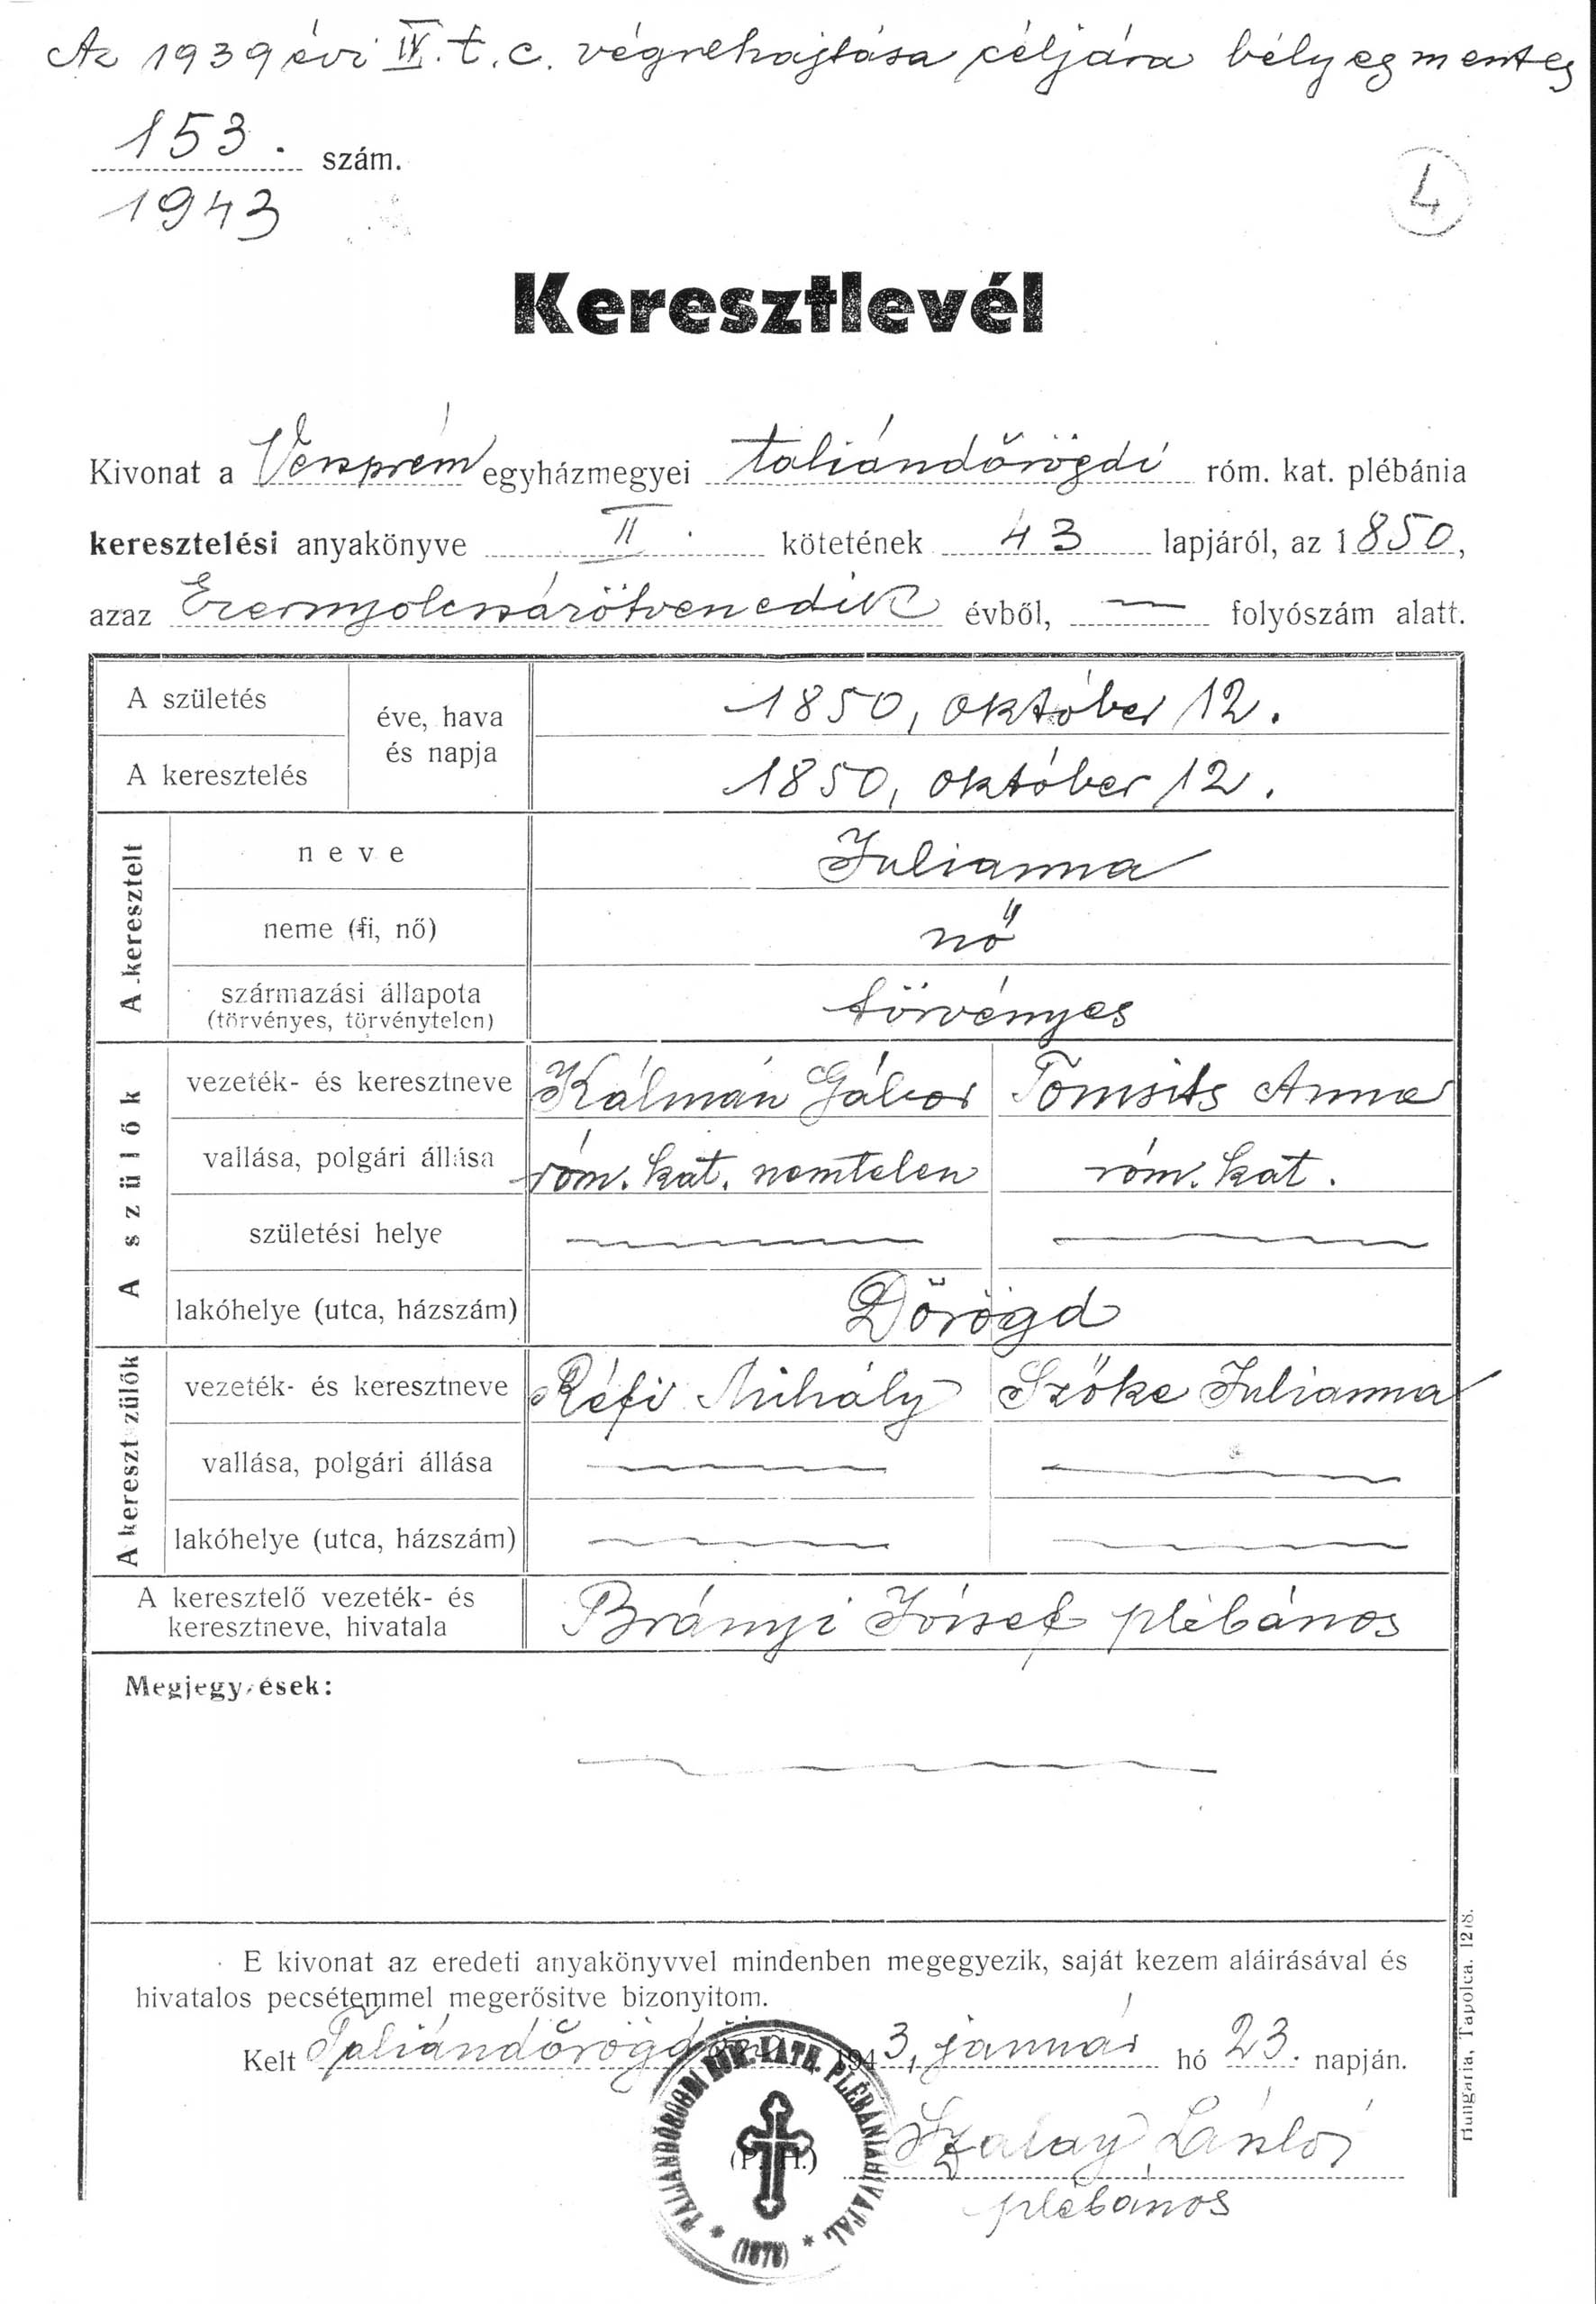 Az 1939 évi IV. t. c. végrehajtása céljára bélyegmentes
153. szám.
1943
4
Keresztlevél
Kivonat a Veszprém egyházmegyei taliándörögdi róm. kat. plébánia
keresztelési anyakönyve II. kötetének 43 lapjáról, az 1850,
azaz Ezernyolcszázötvenedik évből, — folyószám alatt.
A születés
éve, hava és napja
1850, október 12.
A keresztelés
1850, október 12.
A keresztelt
neve
Julianna
neme (fi, nő)
nő
származási állapota (törvényes, törvénytelen)
törvényes
A szülők
vezeték- és keresztneve
Kálmán Gábor
Tomsits Anna
vallása, polgári állása
róm. kat. nemtelen
róm. kat.
születési helye
lakóhelye (utca, házszám)
Dörögd
A kereszt zülők
vezeték- és keresztneve
Réfi Mihály
Szőke Julianna
vallása, polgári állása
lakóhelye (utca, házszám)
A keresztelő vezeték- és keresztneve, hivatala
Brányi József plébános
Megjegyzések:
E kivonat az eredeti anyakönyvvel mindenben megegyezik, saját kezem aláirásával és
hivatalos pecsétemmel megerősitve bizonyitom.
Kelt Taliándörögdön, 1943, január hó 23. napján.
(P. H.)
TALIÁNDÖRÖGDI RÓM. KATH. PLÉBÁNIAHIVATAL
(1878)
Szalay László
plébános
Hungária, Tapolca. 1218.